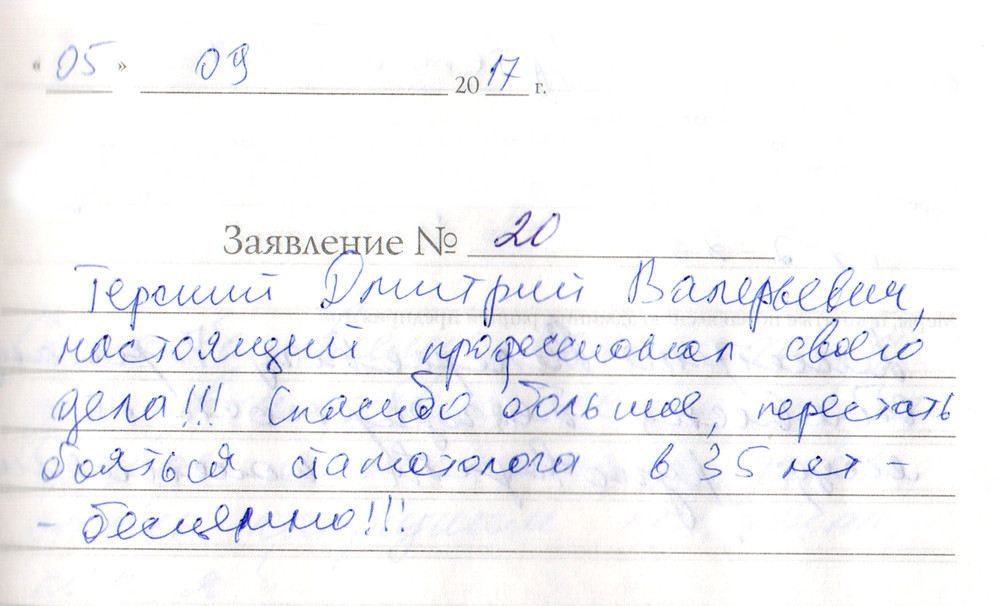 « 05 » 09 2017 г.
Заявление № 20
Терский Дмитрий Валерьевич,
настоящий профессионал своего
дела!!! Спасибо большое, перестать
бояться стаматолога в 35 лет -
- бесценно!!!